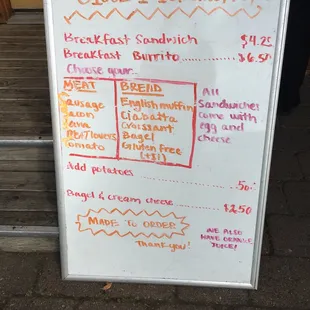 Breakfast Sandwich $4.25
Breakfast Burrito....... $6.50
Choose your...
MEAT BREAD
Sausage English muffin
Bacon Ciabatta
Croissant
Meatlovers Bagel
Tomato Gluten free
(+$1)
All
Sandwiches
come with
egg and
cheese
Add potatoes
.50
Bagel & cream cheese
$2.50
MADE TO ORDER
Thank you!
WE ALSO
HAVE ORANGE
JUICE!